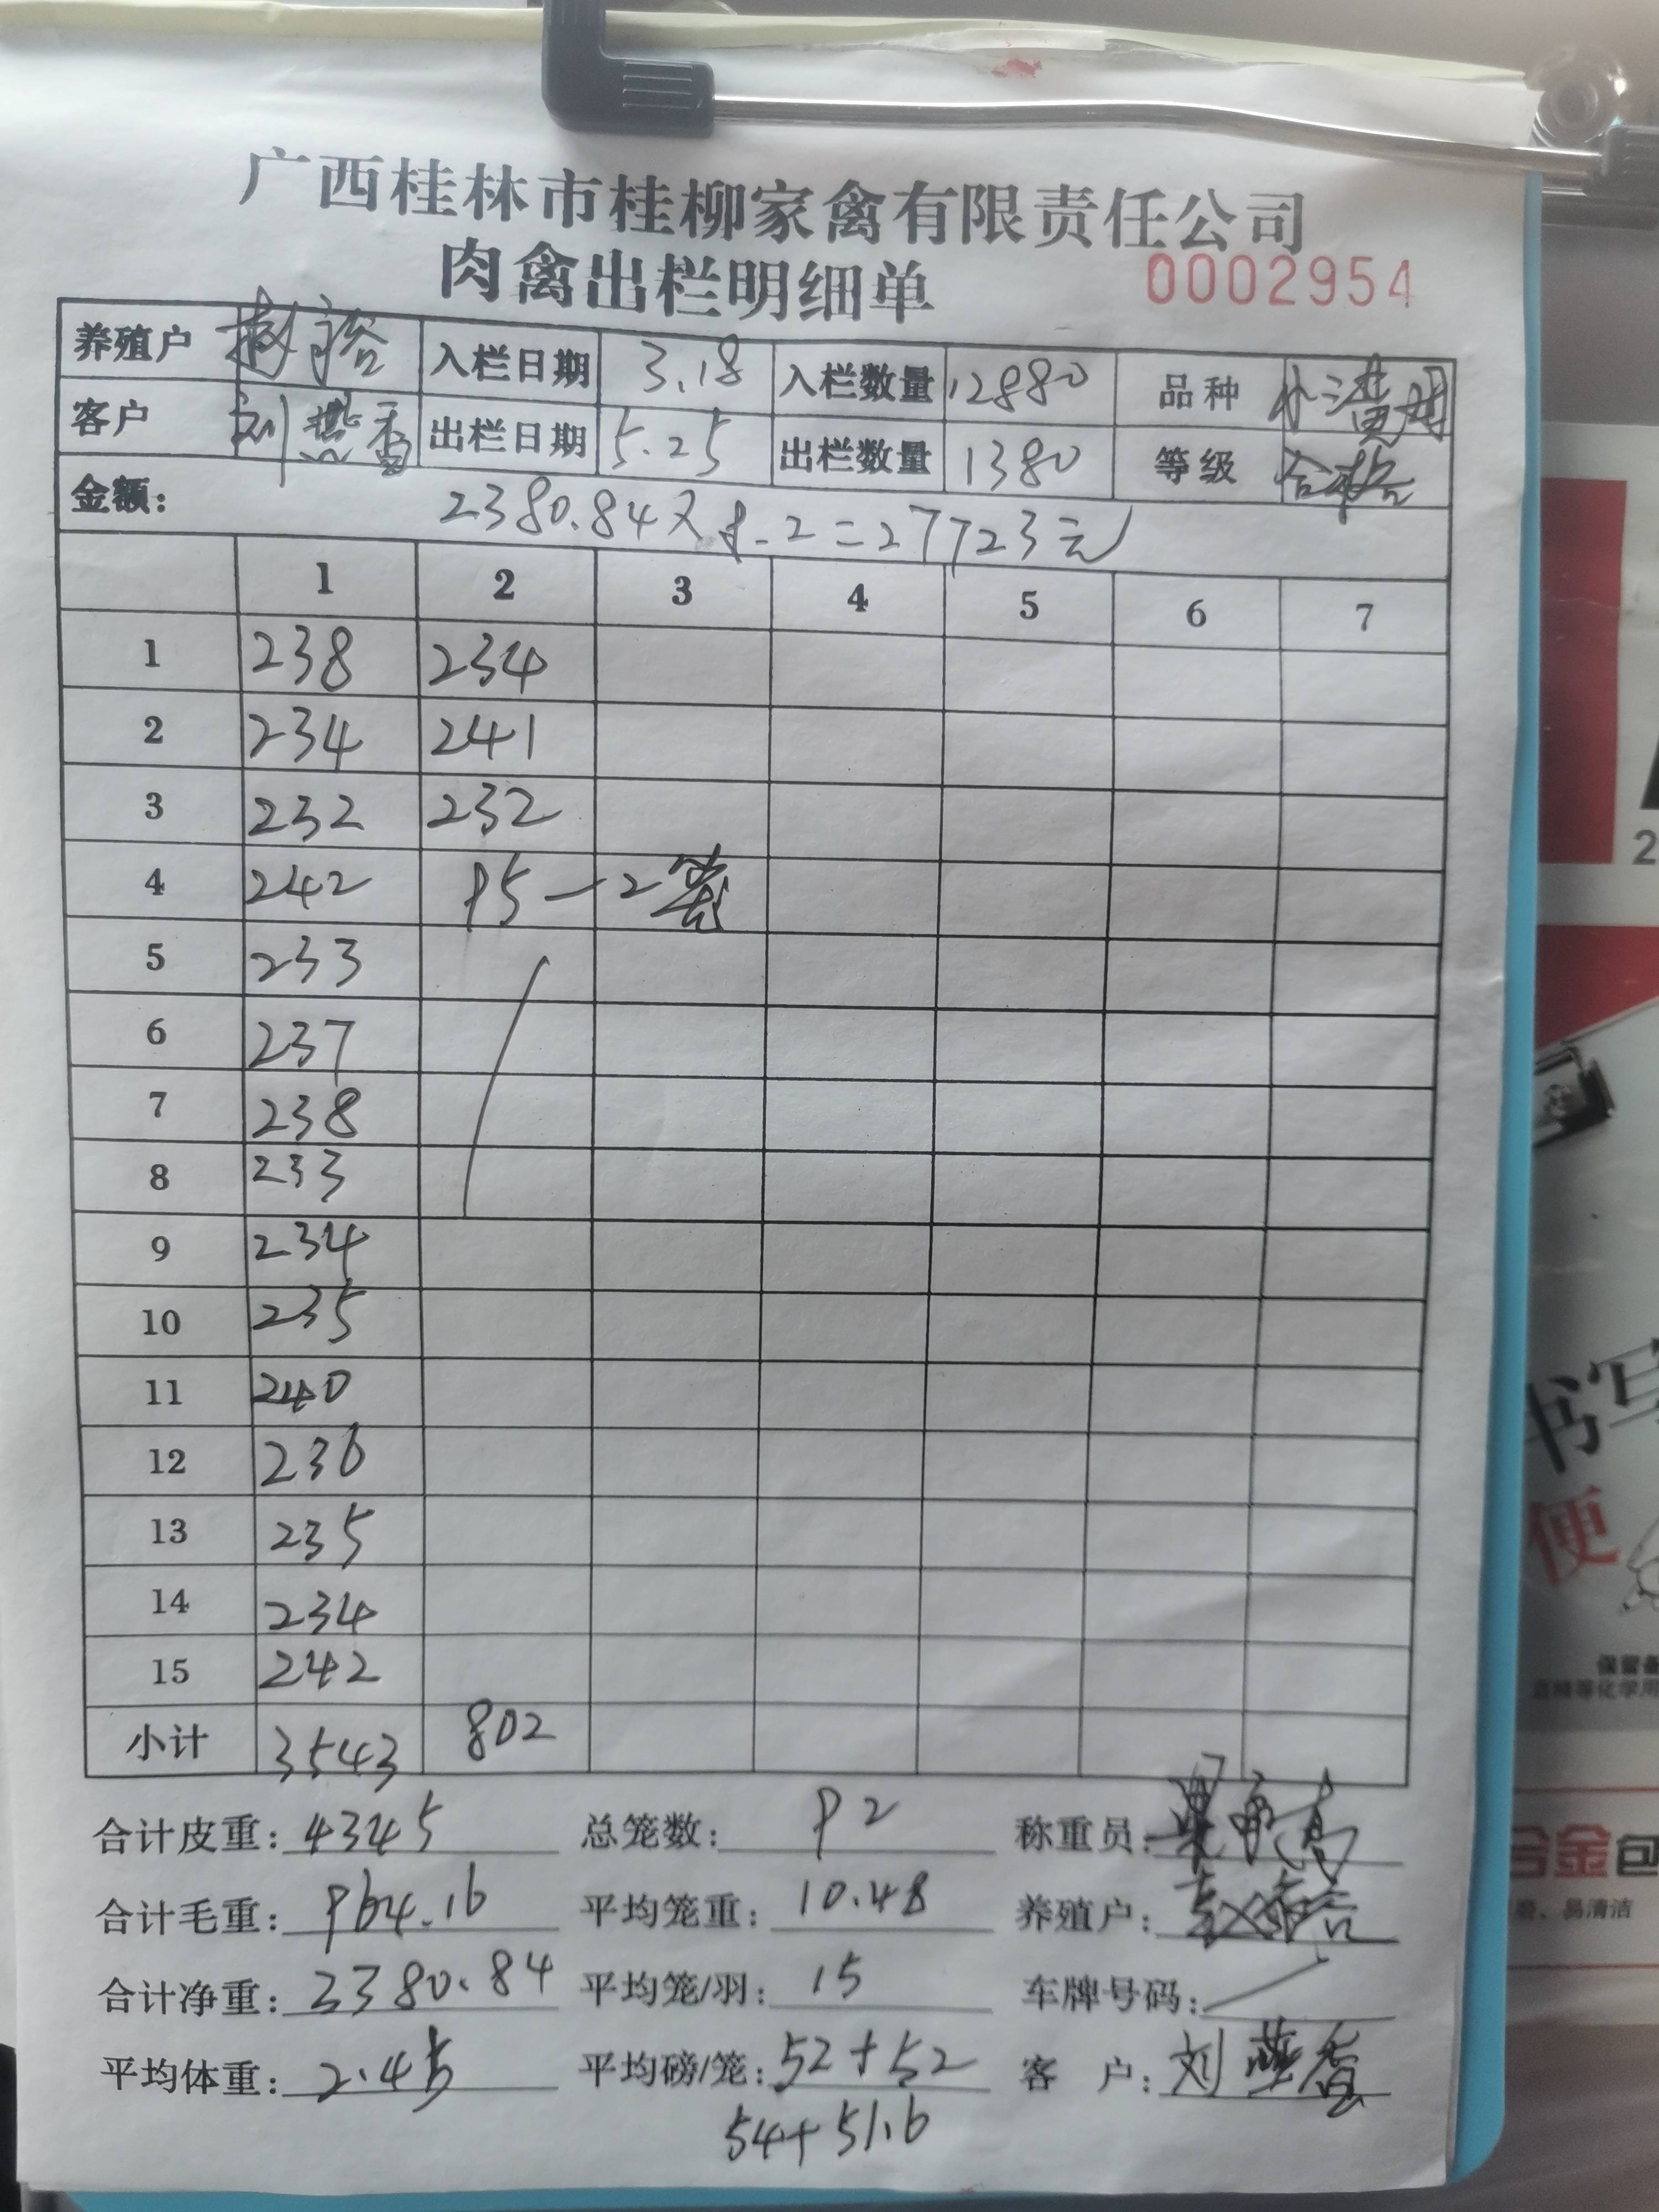 广西桂林市桂柳家禽有限责任公司
肉禽出栏明细单 0002954
养殖户 入栏日期 3.18 入栏数量 12880 品种
客户 刘燕香 出栏日期 5.25 出栏数量 1380 等级 合格
金额: 3380.84×8.2=27723元
1 2 3 4 5 6 7
1 238 234
2 234 241
3 232 232
4 242 95-2笼
5 233
6 237
7 238
8 233
9 234
10 235
11 240
12 236
13 235
14 234
15 242
小计 3543 802
合计皮重: 4345 总笼数: 92 称重员:
合计毛重: 964.16 平均笼重: 10.48 养殖户:
合计净重: 3380.84 平均笼/羽: 15 车牌号码:
平均体重: 2.45 平均磅/笼: 52+52 客 户: 刘燕香
54+51.6
书写
便
合金包
易清洁